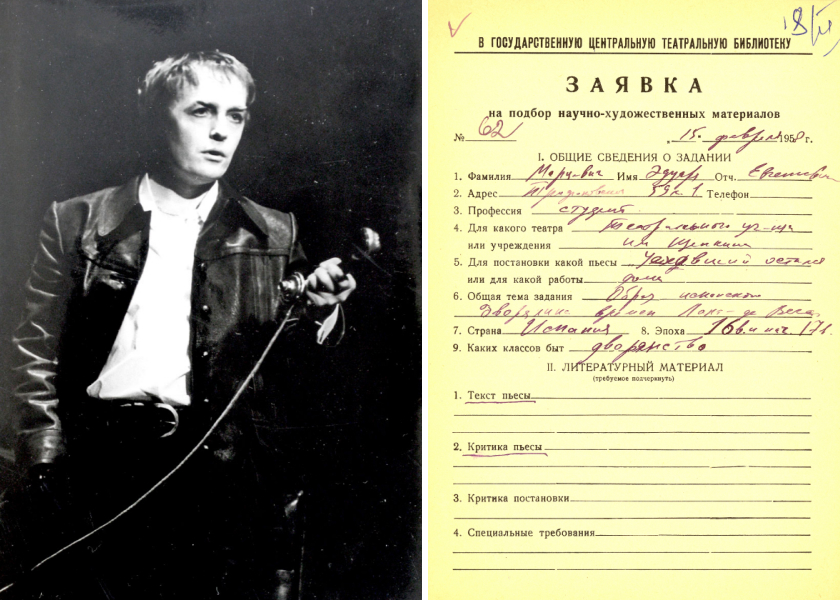 В ГОСУДАРСТВЕННУЮ ЦЕНТРАЛЬНУЮ ТЕАТРАЛЬНУЮ БИБЛИОТЕКУ
ЗАЯВКА
на подбор научно-художественных материалов
№ 62 „15„ февраля 1958 г.
I. ОБЩИЕ СВЕДЕНИЯ О ЗАДАНИИ
1. Фамилия Марцевич Имя Эдуард Отч. Евгеньевич
2. Адрес 59 к. 1 Телефон
3. Профессия студент
4. Для какого театра Театрального уч-ща
или учреждения им Щепкина
5. Для постановки какой пьесы Уехавший остался
или для какой работы дома
6. Общая тема задания Образ испанского
дворянина времен Лопе-де Вега
7. Страна Испания 8. Эпоха 16 в. и нач. 17 в.
9. Каких классов быт дворянство
II. ЛИТЕРАТУРНЫЙ МАТЕРИАЛ
(требуемое подчеркнуть)
1. Текст пьесы
2. Критика пьесы
3. Критика постановки
4. Специальные требования